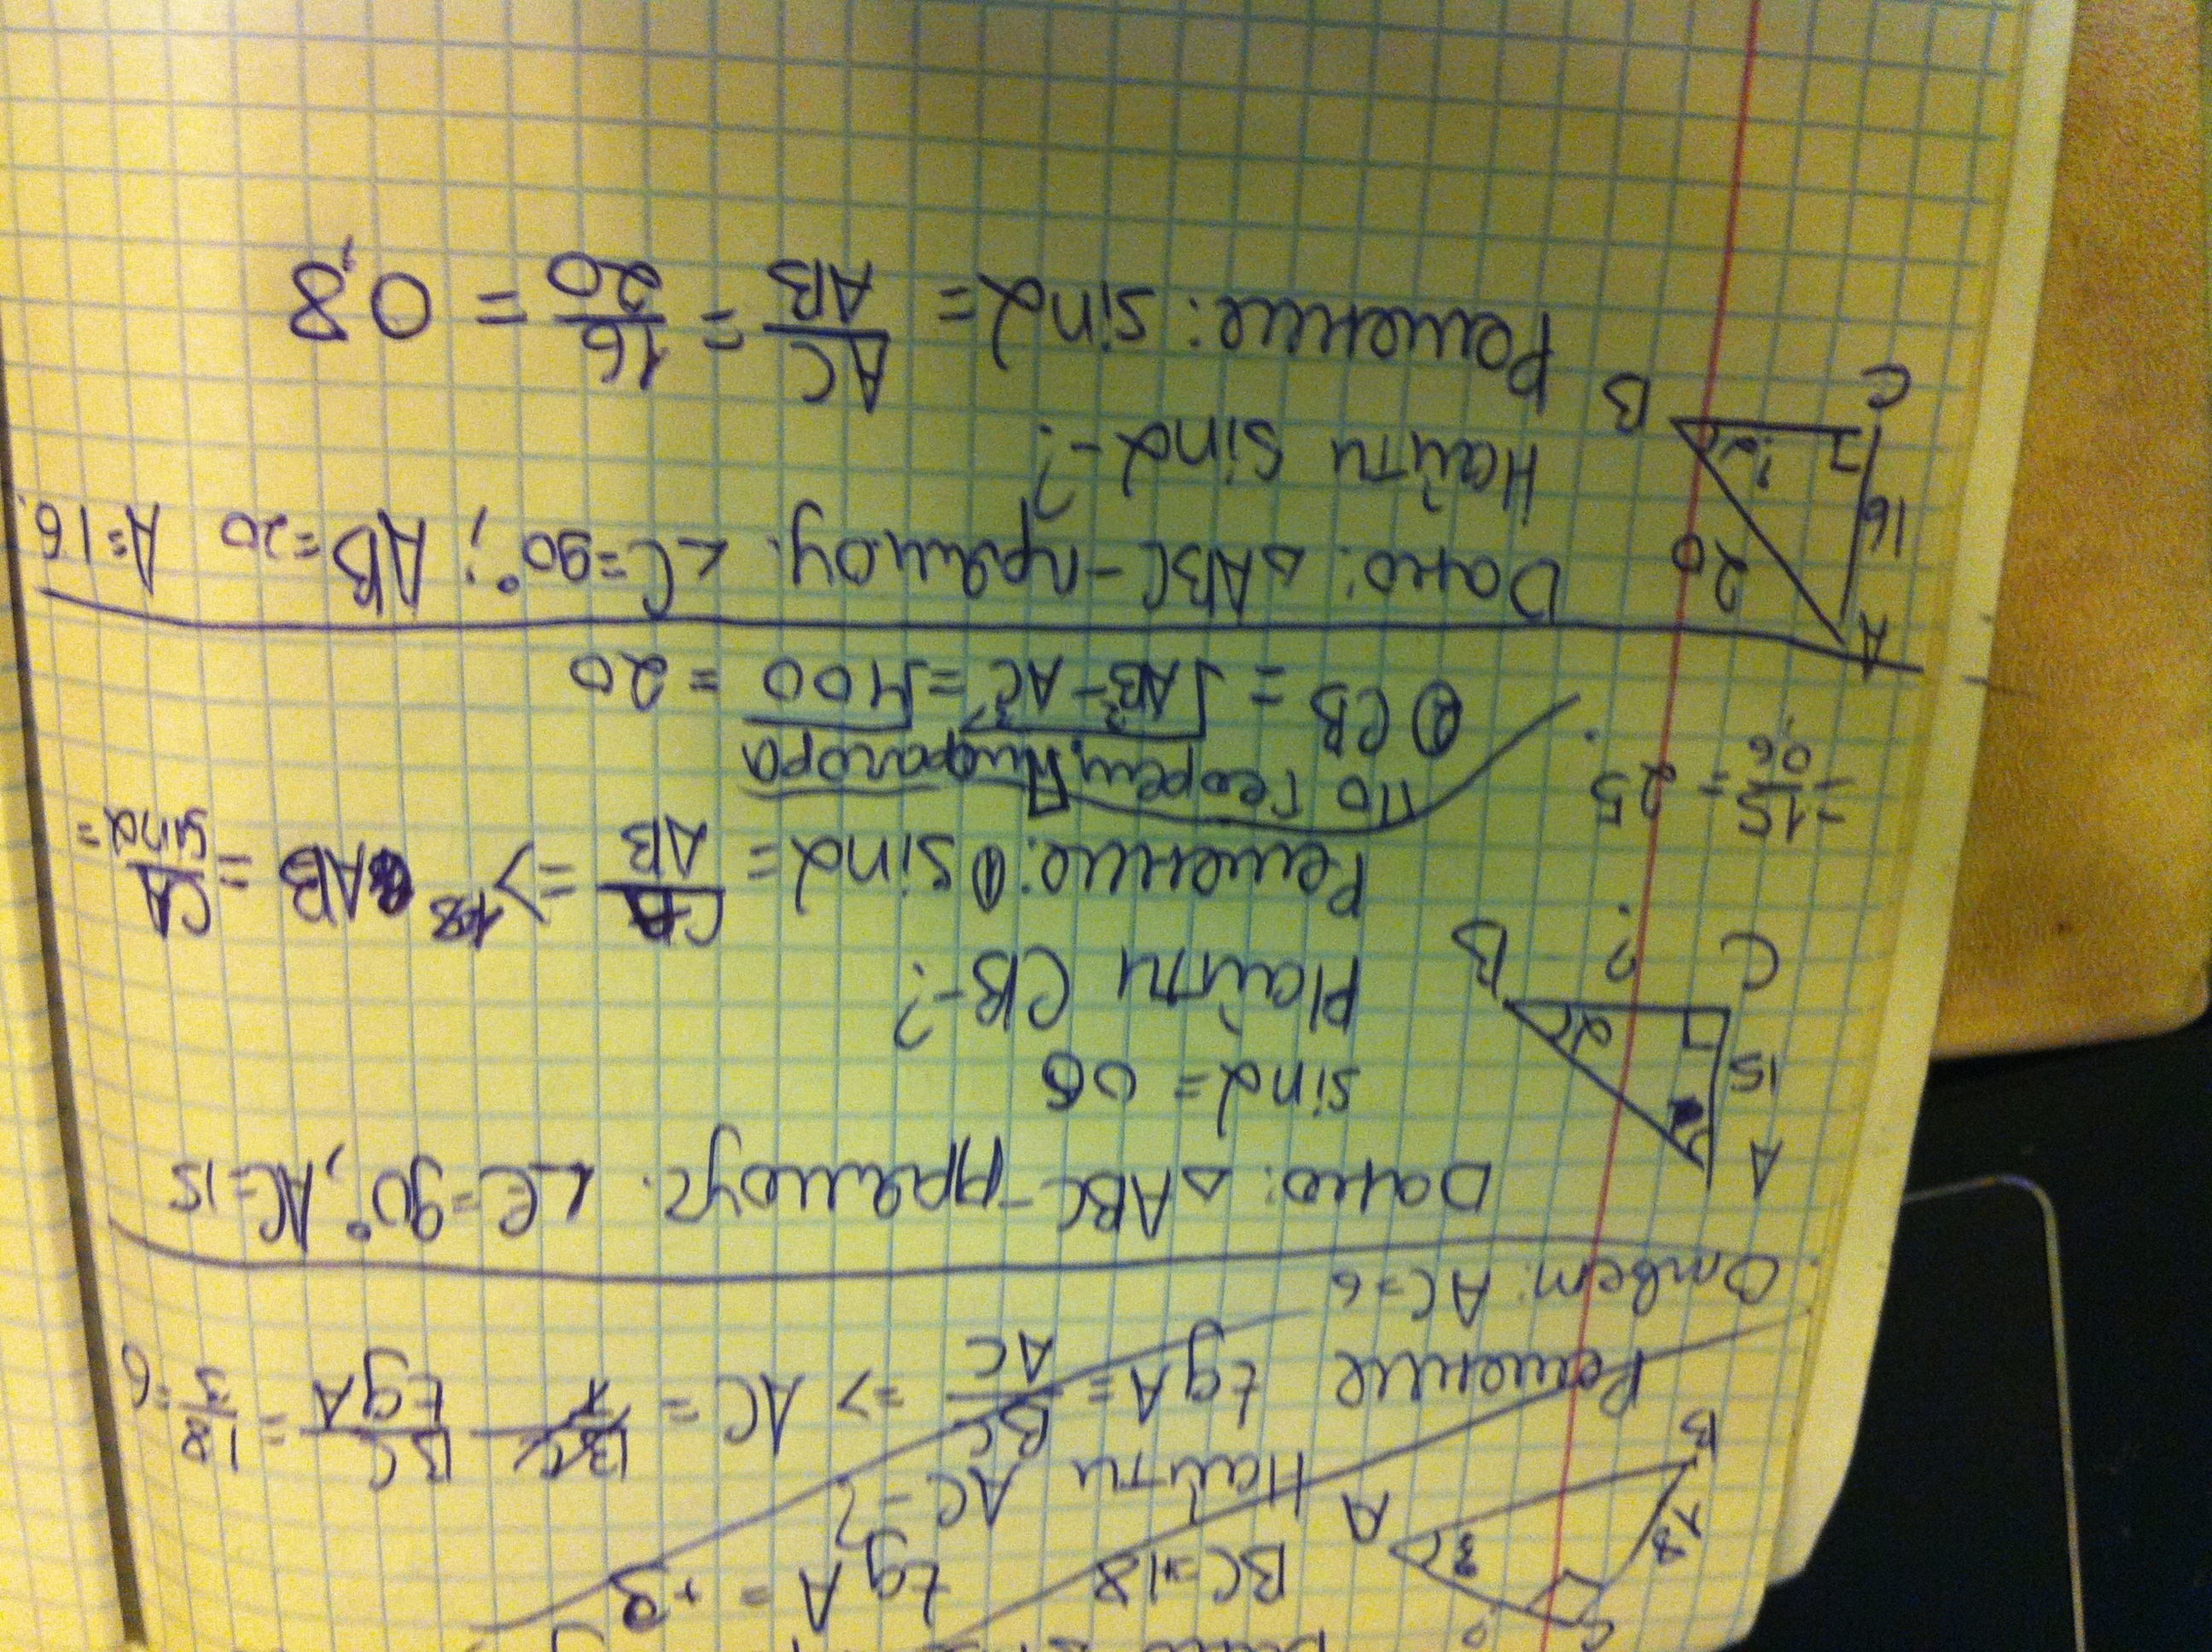 BC=18 tgA = 3
Найти AC-?
Решение tgA = BC/AC => AC = BC/tgA = 18/3 = 6
Ответ: AC=6
Дано: △ABC-прямоуг. ∠C=90°, AC=15
sinα = 06
Найти CB-?
Решение: ① sinα = CA/AB => AB = CA/sinα =
= 15/0,6 = 25.
по Теорем, Пифагора
② CB = √AB²-AC² = √400 = 20
Дано: △ABC-прямоу. ∠C=90°; AB=20 A=16.
Найти sinα-?
Решение: sinα = AC/AB = 16/20 = 0,8
A
B
C
18
3
A
15
C
?
B
α
A
16
20
C
B
?α